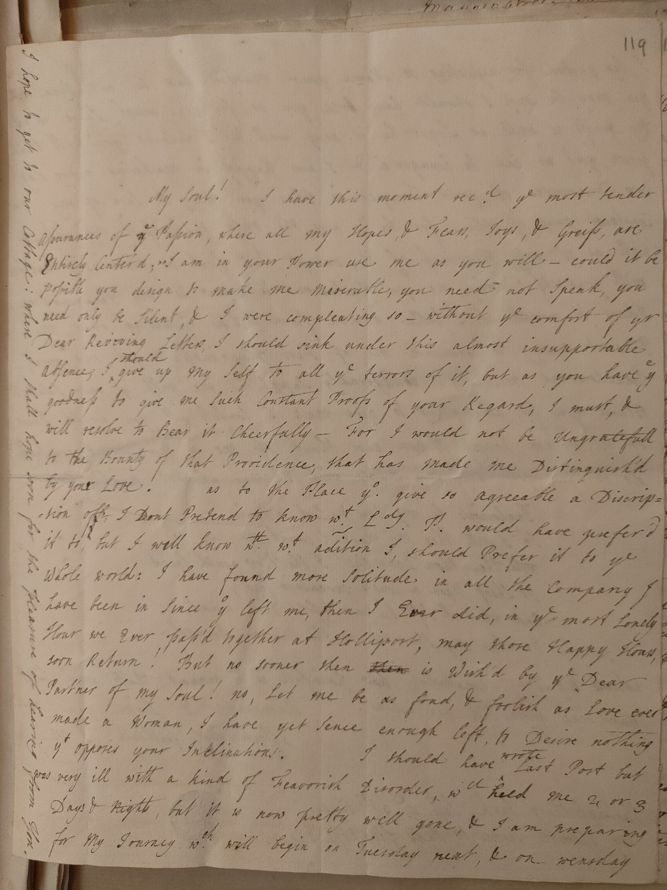 119
My Soul! I have this moment recd ye most tender
assurances of yr Passion, where all my Hopes, & Fears, Joys, & Griefs, are
Entirely Center'd, I am in your Power use me as you will – could it be
posible you design to make me miserable, you need not Speak, you
need only be Silent, & I were compleating so – without ye comfort of yr
Dear Reviving Letters I should sink under this almost insupportable
absence; I should give up my Self to all ye terrors of it, but as you have ye
goodness to give me Such Constant Proofs of your Regard, I must, &
will resolve to Bear it Cheerfully – For I would not be Ungratefull
to the Bounty of that Providence, that has made me Distinguish'd
by your Love. as to the Place yu give so agreeable a Discrip=
=tion off, I Dont Pretend to know wt Ldy P. would have prefer'd
it to, but I well know wth wt adition I, should Prefer it to ye
Whole world: I have found more Solitude in all the Company I
have been in Since yu left me, then I Ever did, in ye most Lonely
Hour we Ever pass'd together at Holliport, may those Happy Hours,
soon Return! But no sooner then then is Wish'd by ye Dear
Partner of my Soul! no, Let me be as fond, & foolish as Love ever
made a Woman, I have yet Sence enough left, to Desire nothing
yt opposes your Inclinations. I should have wrote Last Post but
was very ill with a kind of Feavorish Disorder, wch held me 2 or 3
Days & Nights, but it is now pretty well gone, & I am preparing
for My Journey wch will begin on Tuesday next, & on wensday
I hope to get to our Cottage: where I shall hope soon for the pleasure of hearing from You.